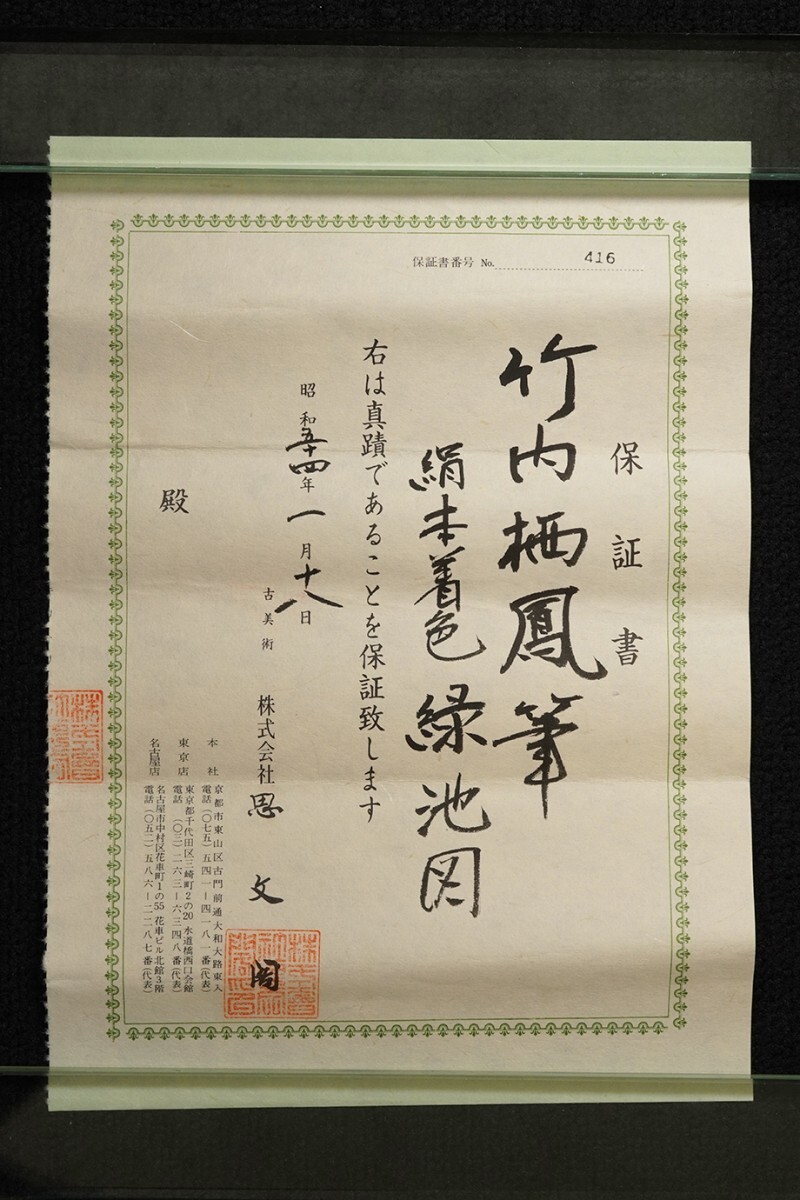 保証書番号 No. 416
保証書
竹内栖鳳筆
絹本着色 緑池図
右は真蹟であることを保証致します
昭和五十四年一月十八日
古美術 株式会社 思文閣
殿
本社 京都市東山区古門前通大和大路東入
電話(〇七五)五四一-四一八一番(代表)
東京店 東京都千代田区三崎町2の20 水道橋西口会館
電話(〇三)二六三-六三四八番(代表)
名古屋店 名古屋市中村区花車町1の55 花車ビル北館3階
電話(〇五二)五八六-二二八七番(代表)